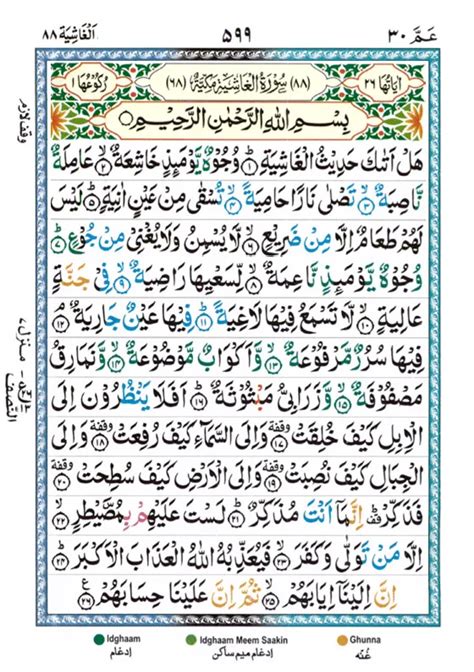 اَلْغَاشِيَة ٨٨
٥٩٩
عَمَّ ٣٠
اٰيَاتُهَا ٢٦
(٨٨) سُوْرَةُ الْغَاشِيَةِ مَكِّيَّةٌ (٦٨)
رُكُوْعُهَا ١
بِسْمِ اللهِ الرَّحْمٰنِ الرَّحِيْمِ
هَلْ اَتٰىكَ حَدِيْثُ الْغَاشِيَةِ ۝١ وُجُوْهٌ يَّوْمَىِٕذٍ خَاشِعَةٌ ۝٢ عَامِلَةٌ
نَّاصِبَةٌ ۝٣ تَصْلٰى نَارًا حَامِيَةً ۝٤ تُسْقٰى مِنْ عَيْنٍ اٰنِيَةٍ ۝٥ لَيْسَ
لَهُمْ طَعَامٌ اِلَّا مِنْ ضَرِيْعٍ ۝٦ لَا يُسْمِنُ وَلَا يُغْنِيْ مِنْ جُوْعٍ ۝٧
وُجُوْهٌ يَّوْمَىِٕذٍ نَّاعِمَةٌ ۝٨ لِّسَعْيِهَا رَاضِيَةٌ ۝٩ فِيْ جَنَّةٍ
عَالِيَةٍ ۝١٠ لَّا تَسْمَعُ فِيْهَا لَاغِيَةً ۝١١ فِيْهَا عَيْنٌ جَارِيَةٌ ۝١٢
فِيْهَا سُرُرٌ مَّرْفُوْعَةٌ ۝١٣ وَّاَكْوَابٌ مَّوْضُوْعَةٌ ۝١٤ وَّنَمَارِقُ
مَصْفُوْفَةٌ ۝١٥ وَّزَرَابِيُّ مَبْثُوْثَةٌ ۝١٦ اَفَلَا يَنْظُرُوْنَ اِلَى
الْاِبِلِ كَيْفَ خُلِقَتْ ۝١٧ وَاِلَى السَّمَآءِ كَيْفَ رُفِعَتْ ۝١٨ وَاِلَى
الْجِبَالِ كَيْفَ نُصِبَتْ ۝١٩ وَاِلَى الْاَرْضِ كَيْفَ سُطِحَتْ ۝٢٠
فَذَكِّرْ اِنَّمَآ اَنْتَ مُذَكِّرٌ ۝٢١ لَسْتَ عَلَيْهِمْ بِمُصَۜيْطِرٍ ۝٢٢
اِلَّا مَنْ تَوَلّٰى وَكَفَرَ ۝٢٣ فَيُعَذِّبُهُ اللهُ الْعَذَابَ الْاَكْبَرَ ۝٢٤
اِنَّ اِلَيْنَآ اِيَابَهُمْ ۝٢٥ ثُمَّ اِنَّ عَلَيْنَا حِسَابَهُمْ ۝٢٦
وقف لازم
منزل ٧
النصف
Idghaam
Idghaam Meem Saakin
Ghunna
اِدغام
اِدغام میم ساکن
غُنّه